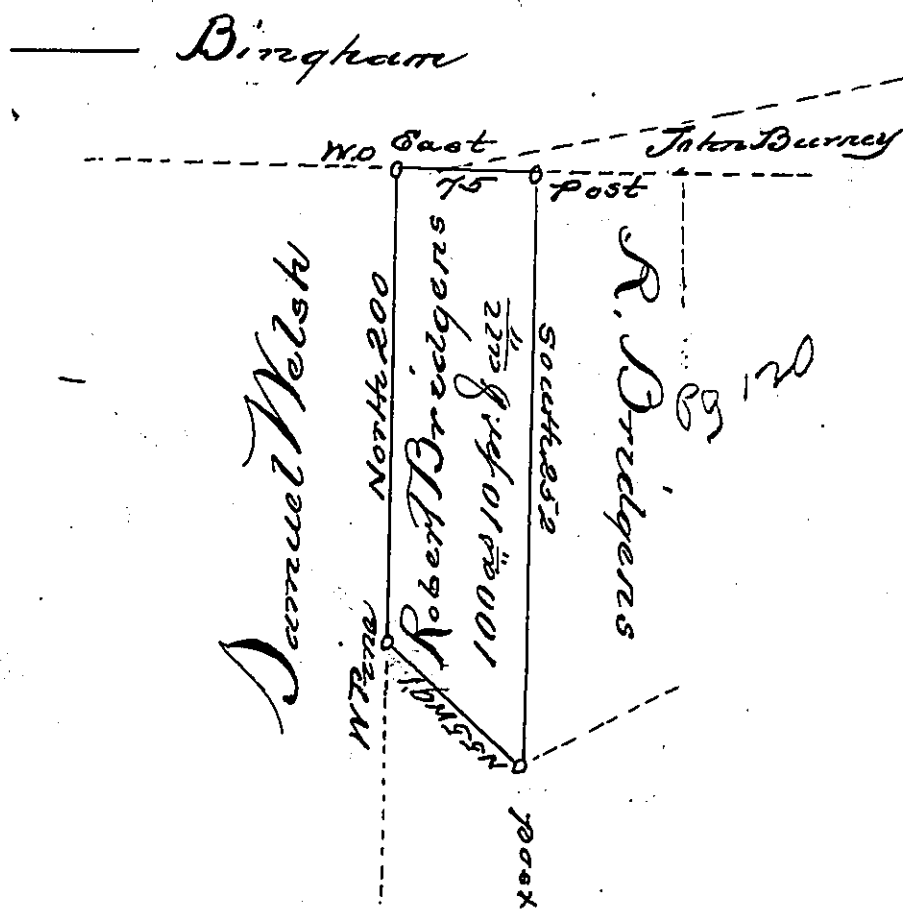 Bingham
W.O East
John Burney
75
Post
Samuel Welsh
North 200
Robert Bridgens
100 a's 10 pr. &
South 252
R. Bridgens
Pg 120
W Pine
N 55 W
post